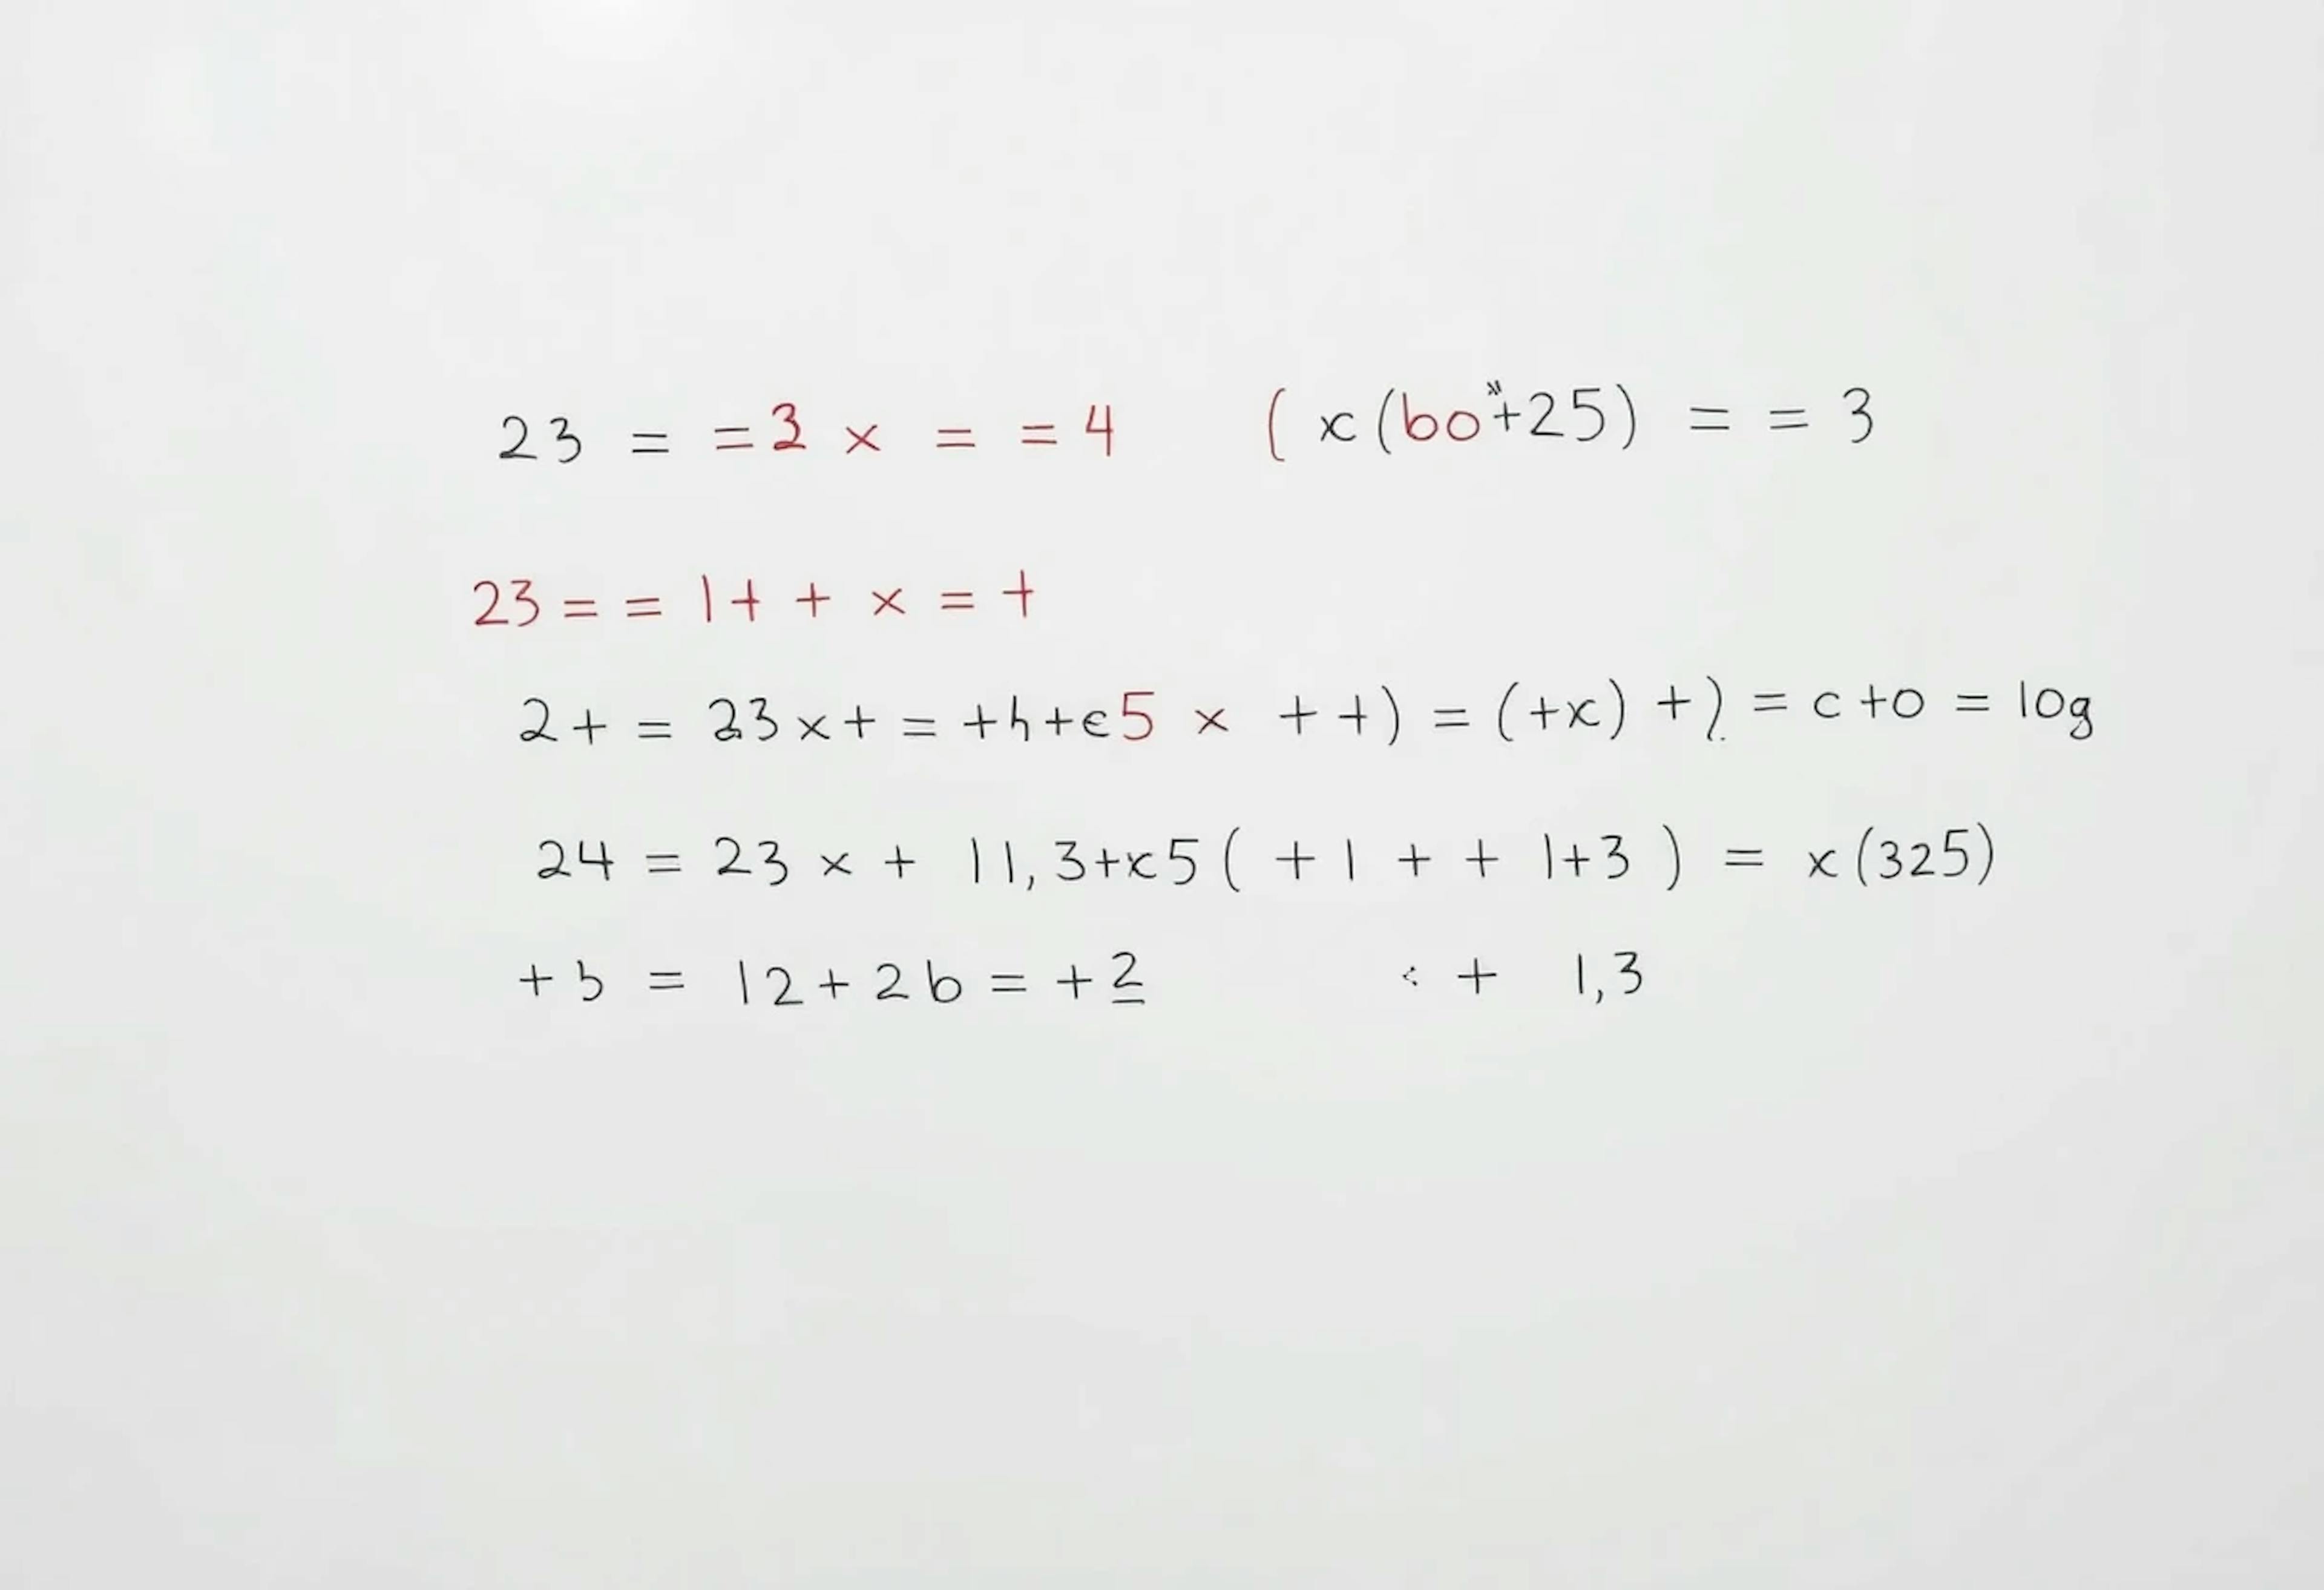 23 = = 3 x = = 4 ( x (bo"+25) = = 3
23 = = 1+ + x = +
2+ = 23 x + = +h+c5 x + +) = (+x) +) = c +o = log
24 = 23 x + 11,3+x5 ( +1 + + 1+3 ) = x (325)
+ b = 12 + 2b = +2 + 1,3